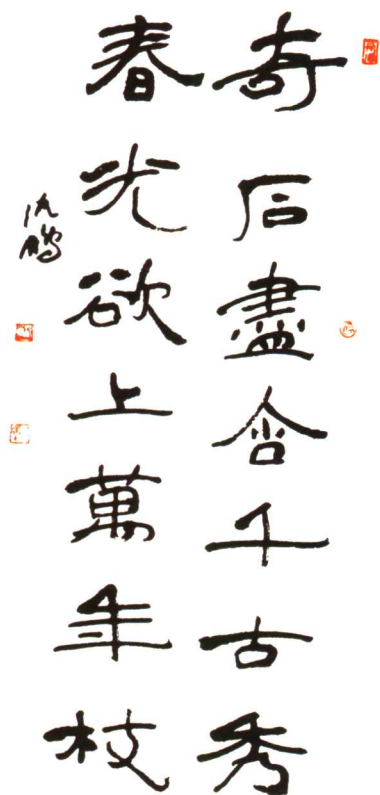 奇石盡含千古秀
春光欲上萬年枝
仇鵬